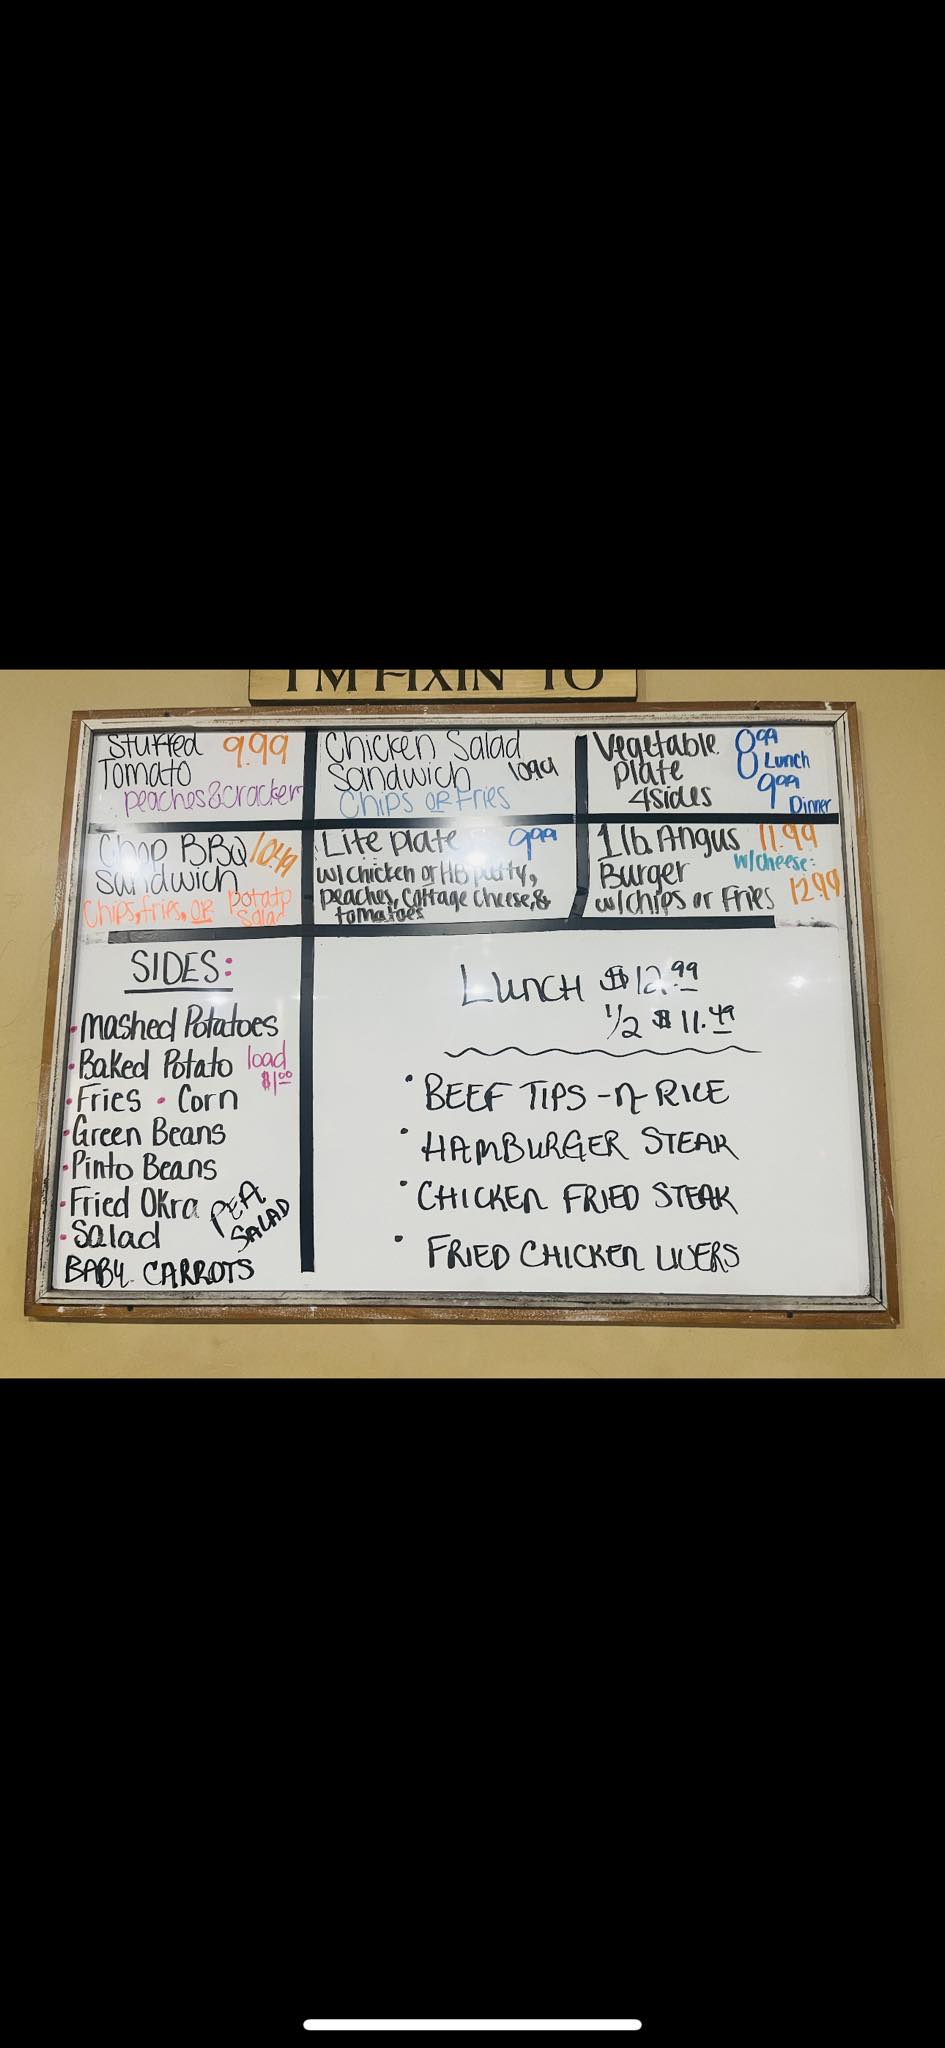 I'M FIXIN' TO
Stuffed 9.99
Tomato
peaches & cracker
Chicken Salad
Sandwich 10.99
Chips OR Fries
Vegetable 8.99 Lunch
plate 9.99 Dinner
4 sides
Chop BBQ 10.49
Sandwich
Chips, fries, OR potato salad
Lite plate 9.99
w/ chicken or HB patty,
peaches, cottage cheese, &
tomatoes
1 lb. Angus 11.99
Burger w/cheese:
w/chips or Fries 12.99
SIDES:
• Mashed Potatoes
• Baked Potato load $1.00
• Fries • Corn
• Green Beans
• Pinto Beans
• Fried Okra
PEA SALAD
• Salad
BABY CARROTS
LUNCH $12.99
1/2 $11.49
• BEEF TIPS -N- RICE
• HAMBURGER STEAK
• CHICKEN FRIED STEAK
• FRIED CHICKEN LIVERS